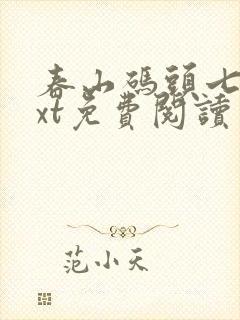 春山碼頭七
xt免費閱讀
范小天